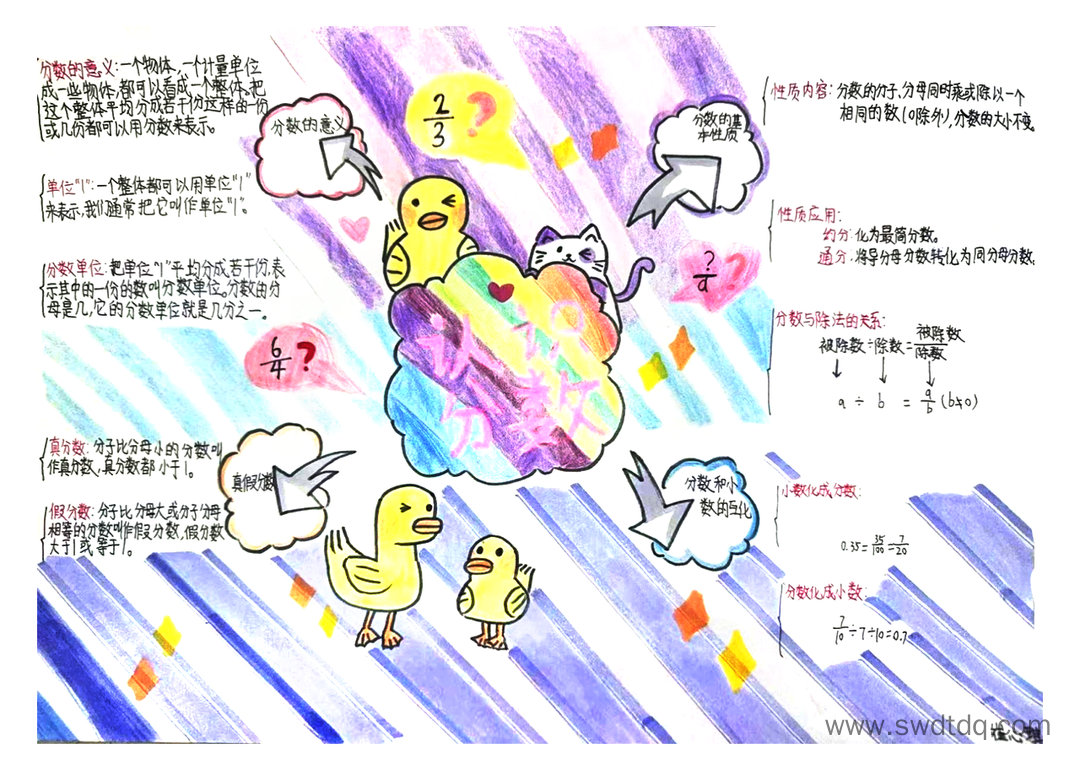 分数的意义:一个物体,一个计量单位
成一些物体,都可以看成一个整体。把
这个整体平均分成若干份这样的一份
或几份都可以用分数来表示。
单位"1":一个整体都可以用单位"1"
来表示,我们通常把它叫作单位"1"。
分数单位:把单位"1"平均分成若干份,表
示其中的一份的数叫分数单位。分数的分
母是几,它的分数单位就是几分之一。
真分数:分子比分母小的分数叫
作真分数,真分数都小于1。
假分数:分子比分母大或分子分母
相等的分数叫作假分数,假分数
大于1或等于1。
分数的意义
2/3 ?
分数的基
本性质
?/a ?
6/4 ?
认识
分数
真假分数
分数和小
数的互化
性质内容:分数的分子、分母同时乘或除以一个
相同的数(0除外),分数的大小不变。
性质应用:
约分:化为最简分数。
通分:将异母分数转化为同分母分数。
分数与除法的关系:
被除数÷除数=被除数/除数
a ÷ b = a/b (b≠0)
小数化成分数:
0.35=35/100=7/20
分数化成小数:
7/10÷7÷10=0.7
www.swdtdq.com